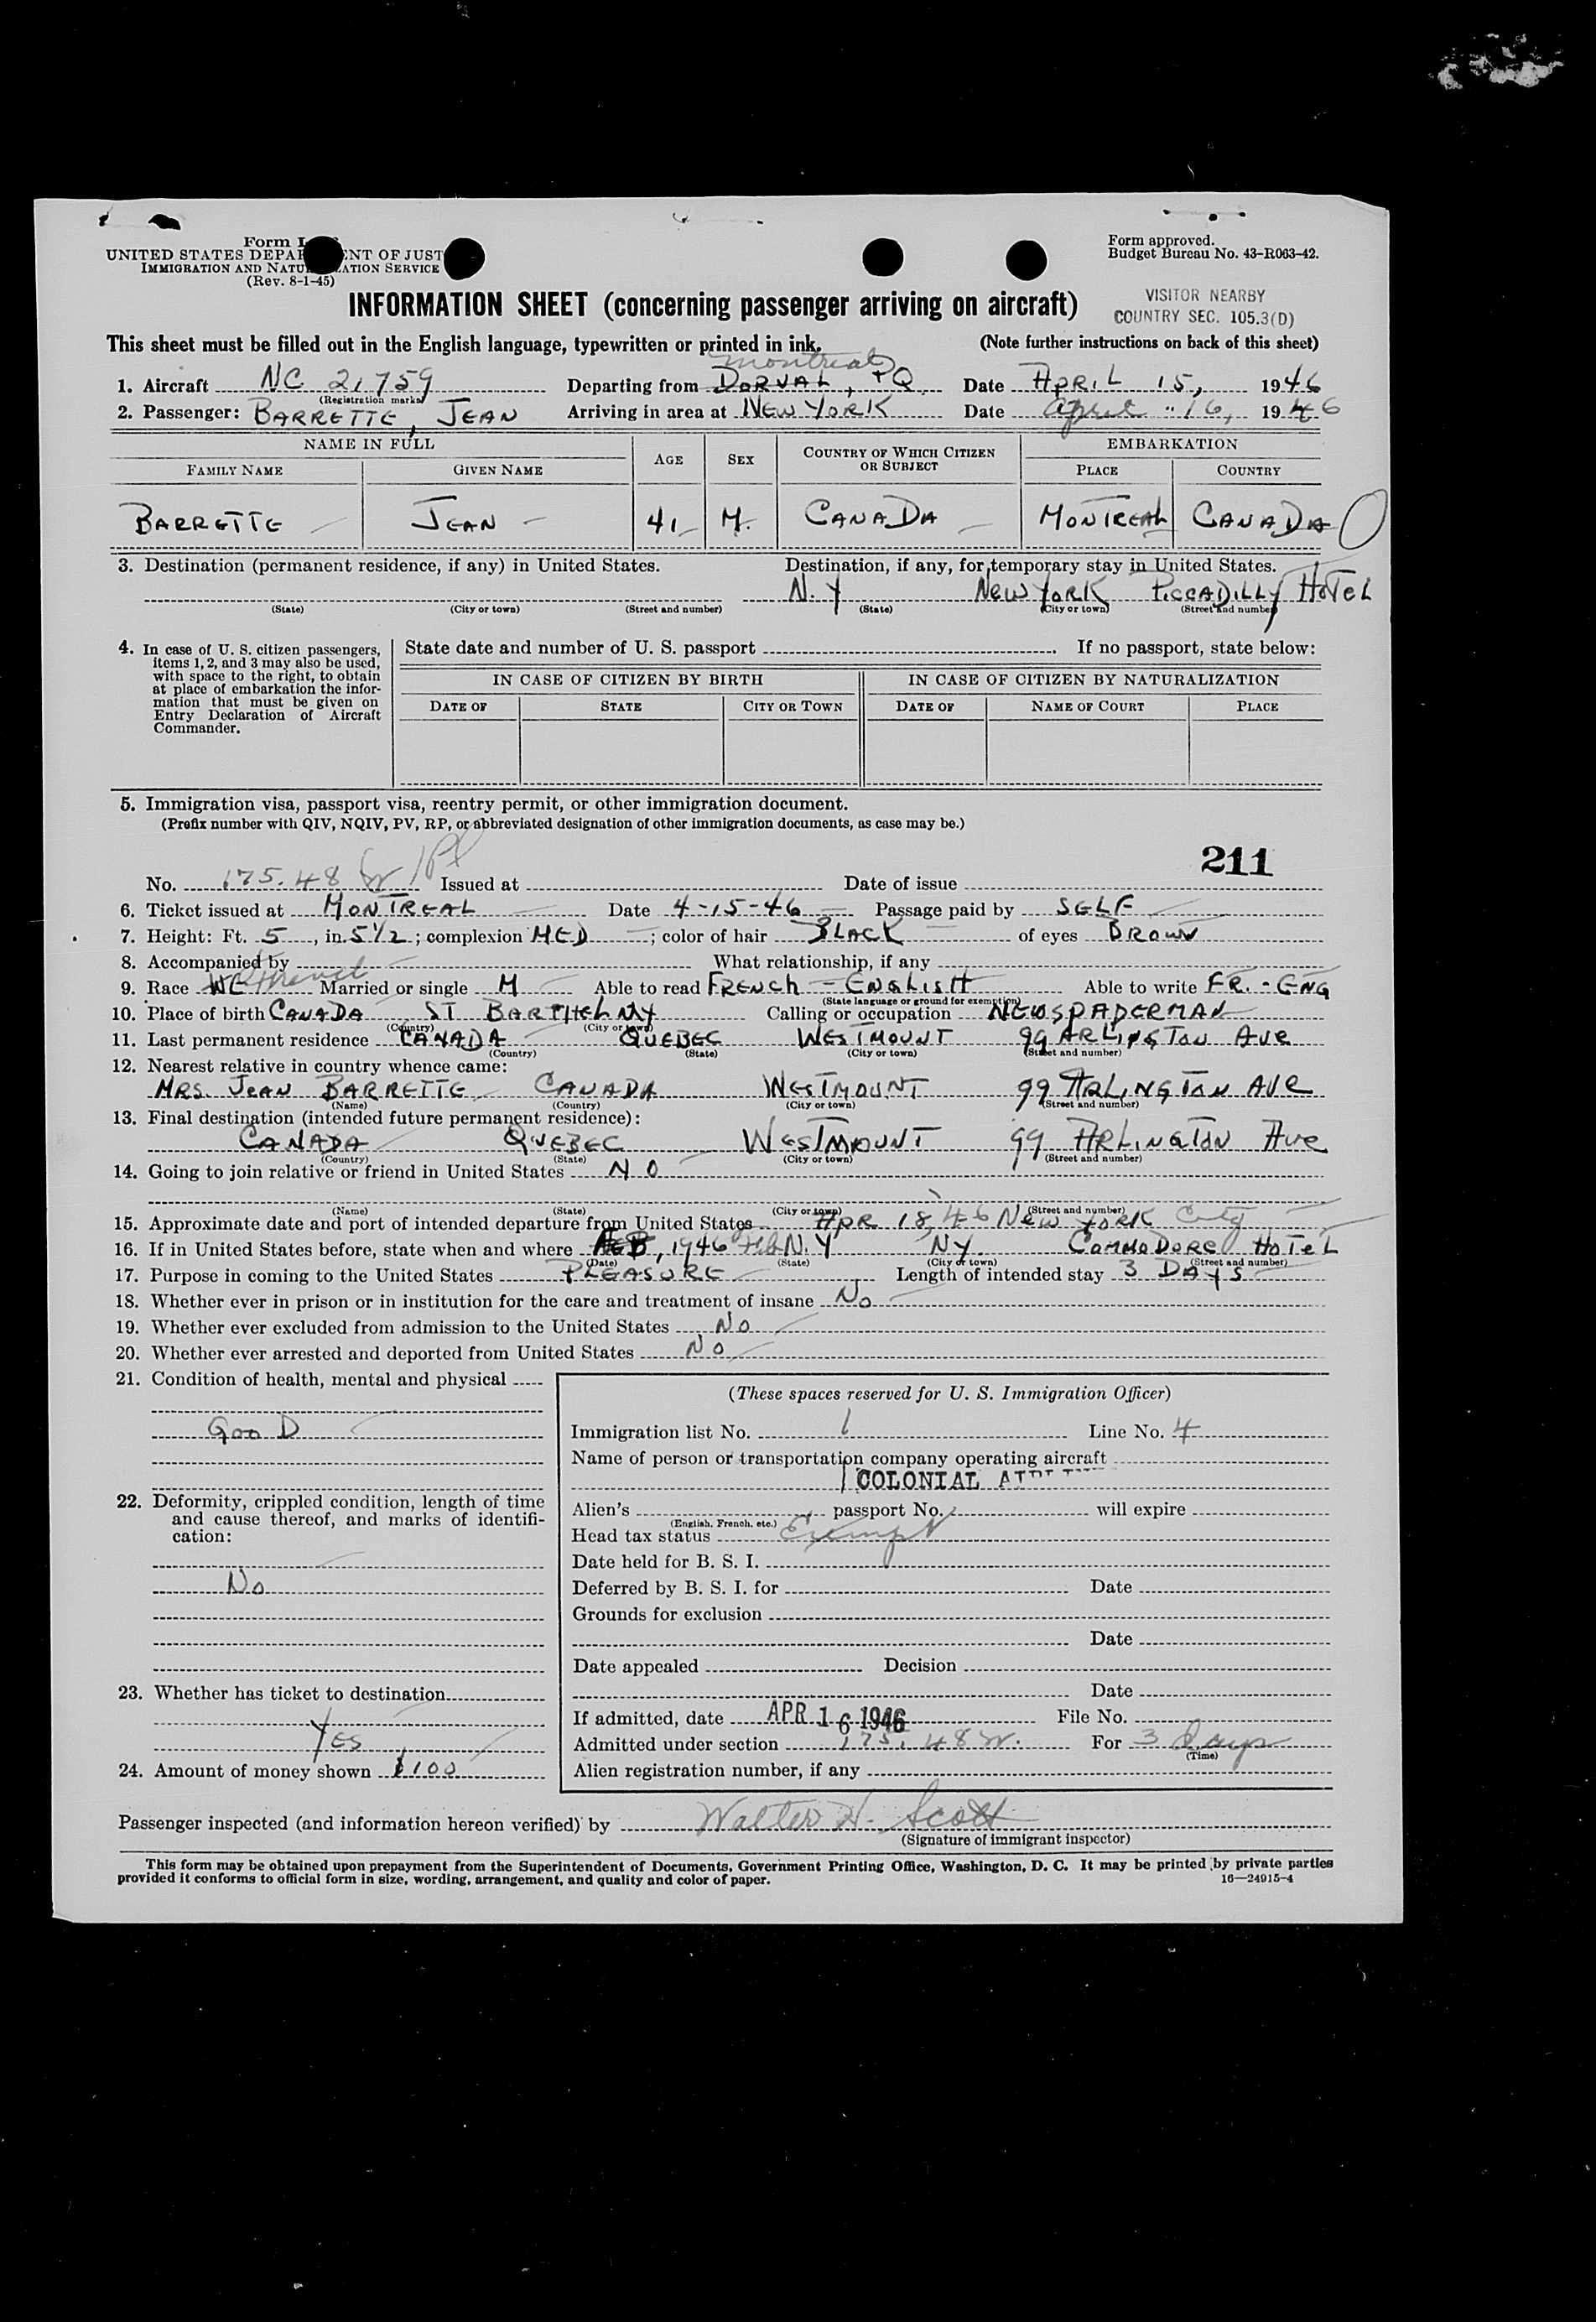 Form I
UNITED STATES DEPA NT OF JUST
IMMIGRATION AND NATU ATION SERVICE
(Rev. 8-1-45)
Form approved.
Budget Bureau No. 43-R063-42.
INFORMATION SHEET (concerning passenger arriving on aircraft)
VISITOR NEARBY
COUNTRY SEC. 105.3(D)
This sheet must be filled out in the English language, typewritten or printed in ink.
(Note further instructions on back of this sheet)
Montreal
1. Aircraft NC 21759 Departing from DORVAL, PQ Date APRIL 15, 1946
(Registration marks)
2. Passenger: BARRETTE, JEAN Arriving in area at NEW YORK Date April 16, 1946
NAME IN FULL AGE SEX COUNTRY OF WHICH CITIZEN OR SUBJECT EMBARKATION
FAMILY NAME GIVEN NAME PLACE COUNTRY
BARRETTE JEAN 41 M. CANADA MONTREAL CANADA
3. Destination (permanent residence, if any) in United States. Destination, if any, for temporary stay in United States.
N.Y NEW YORK PICCADILLY HOTEL
(State) (City or town) (Street and number) (State) (City or town) (Street and number)
4. In case of U. S. citizen passengers,
items 1, 2, and 3 may also be used,
with space to the right, to obtain
at place of embarkation the infor-
mation that must be given on
Entry Declaration of Aircraft
Commander.
State date and number of U. S. passport . If no passport, state below:
IN CASE OF CITIZEN BY BIRTH IN CASE OF CITIZEN BY NATURALIZATION
DATE OF STATE CITY OR TOWN DATE OF NAME OF COURT PLACE
5. Immigration visa, passport visa, reentry permit, or other immigration document.
(Prefix number with QIV, NQIV, PV, RP, or abbreviated designation of other immigration documents, as case may be.)
211
No. 175.48 Issued at Date of issue
6. Ticket issued at MONTREAL Date 4-15-46 Passage paid by SELF
7. Height: Ft. 5, in. 5 1/2; complexion MED; color of hair BLACK of eyes BROWN
8. Accompanied by What relationship, if any
9. Race French Married or single M Able to read FRENCH - ENGLISH Able to write FR. - ENG
(State language or ground for exemption)
10. Place of birth CANADA ST BARTHELMY Calling or occupation NEWSPAPERMAN
(Country) (City or town)
11. Last permanent residence CANADA QUEBEC WESTMOUNT 99 ARLINGTON AVE
(Country) (State) (City or town) (Street and number)
12. Nearest relative in country whence came:
MRS JEAN BARRETTE CANADA WESTMOUNT 99 ARLINGTON AVE
(Name) (Country) (City or town) (Street and number)
13. Final destination (intended future permanent residence):
CANADA QUEBEC WESTMOUNT 99 ARLINGTON AVE
(Country) (State) (City or town) (Street and number)
14. Going to join relative or friend in United States NO
(Name) (State) (City or town) (Street and number)
15. Approximate date and port of intended departure from United States APR 18, 46 NEW YORK City
16. If in United States before, state when and where FEB, 1946 Feb N.Y NY. COMMODORE HOTEL
(Date) (State) (City or town) (Street and number)
17. Purpose in coming to the United States PLEASURE Length of intended stay 3 DAYS
18. Whether ever in prison or in institution for the care and treatment of insane NO
19. Whether ever excluded from admission to the United States NO
20. Whether ever arrested and deported from United States NO
21. Condition of health, mental and physical
GOOD
22. Deformity, crippled condition, length of time
and cause thereof, and marks of identifi-
cation:
NO
23. Whether has ticket to destination
YES
24. Amount of money shown $100
(These spaces reserved for U. S. Immigration Officer)
Immigration list No. 1 Line No. 4
Name of person or transportation company operating aircraft
COLONIAL
Alien's passport No. will expire
(English, French, etc.)
Head tax status Exempt
Date held for B. S. I.
Deferred by B. S. I. for Date
Grounds for exclusion
Date
Date appealed Decision
Date
If admitted, date APR 16 1946 File No.
Admitted under section 175.48 W. For 3 Days
(Time)
Alien registration number, if any
Passenger inspected (and information hereon verified) by Walter H. Scott
(Signature of immigrant inspector)
This form may be obtained upon prepayment from the Superintendent of Documents, Government Printing Office, Washington, D. C. It may be printed by private parties
provided it conforms to official form in size, wording, arrangement, and quality and color of paper. 16—24915-4